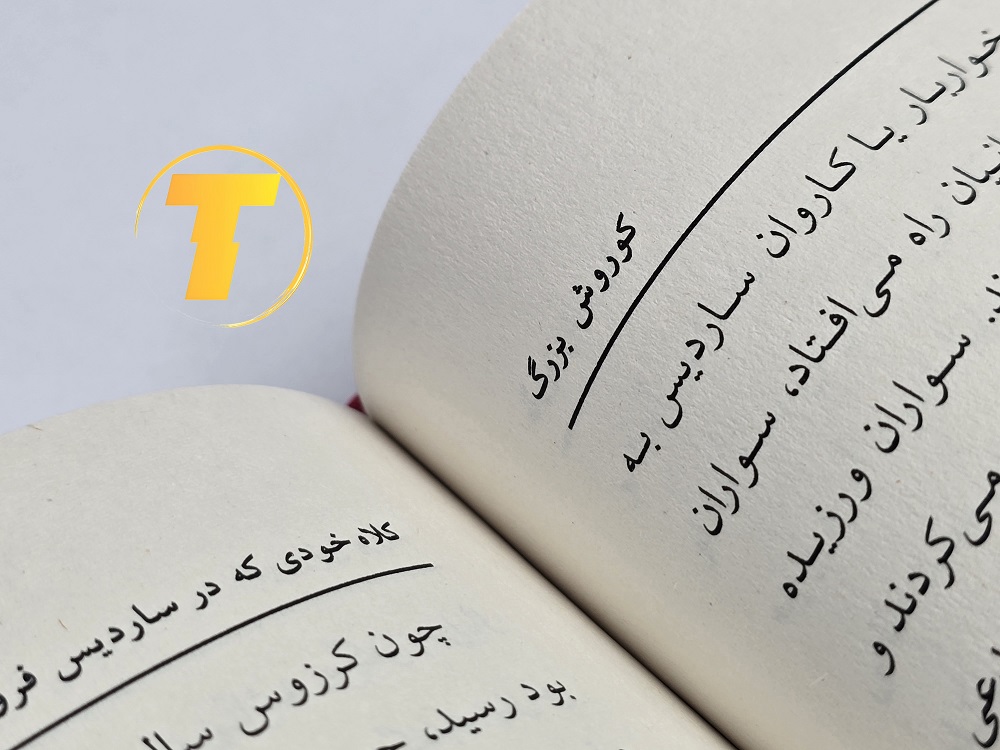 T
کوروش بزرگ
خواربار یا کاروان ساردیس به
راه می‌افتاد، سواران
سواران ورزیده
می‌کردند و
کلاه خودی که در ساردیس
چون کرزوس
بود رسید،